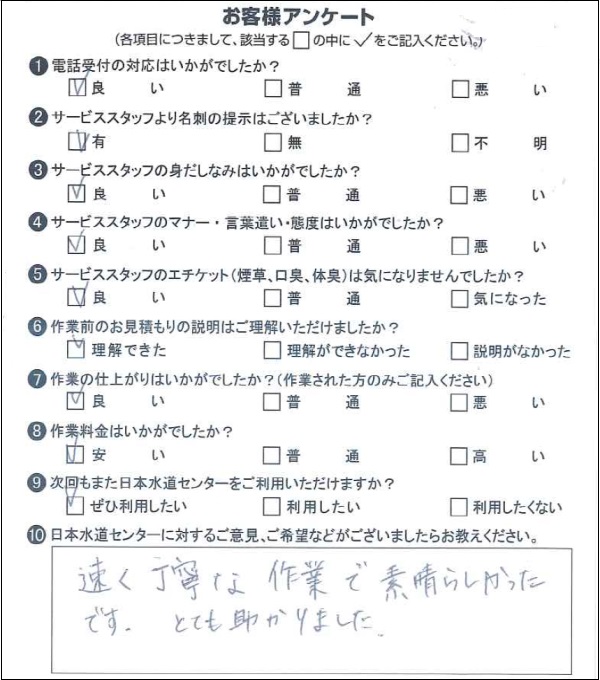 お客様アンケート
(各項目につきまして、該当する□の中に✓をご記入ください。)
❶ 電話受付の対応はいかがでしたか?
☑ 良 い □ 普 通 □ 悪 い
❷ サービススタッフより名刺の提示はございましたか?
☑ 有 □ 無 □ 不 明
❸ サービススタッフの身だしなみはいかがでしたか?
☑ 良 い □ 普 通 □ 悪 い
❹ サービススタッフのマナー・言葉遣い・態度はいかがでしたか?
☑ 良 い □ 普 通 □ 悪 い
❺ サービススタッフのエチケット(煙草、口臭、体臭)は気になりませんでしたか?
☑ 良 い □ 普 通 □ 気になった
❻ 作業前のお見積もりの説明はご理解いただけましたか?
☑ 理解できた □ 理解ができなかった □ 説明がなかった
❼ 作業の仕上がりはいかがでしたか?(作業された方のみご記入ください)
☑ 良 い □ 普 通 □ 悪 い
❽ 作業料金はいかがでしたか?
☑ 安 い □ 普 通 □ 高 い
❾ 次回もまた日本水道センターをご利用いただけますか?
☑ ぜひ利用したい □ 利用したい □ 利用したくない
❿ 日本水道センターに対するご意見、ご希望などがございましたらお教えください。
速く丁寧な作業で素晴らしかった
です. とても助かりました.